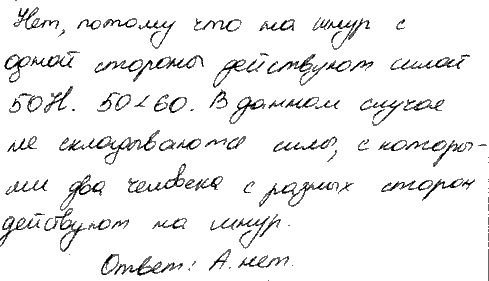 Нет, потому что на шнур с
одной стороны действуют силой
50Н. 50<60. В данном случае
не складываются силы, с которы-
ми два человека с разных сторон
действуют на шнур.
Ответ: А. нет.